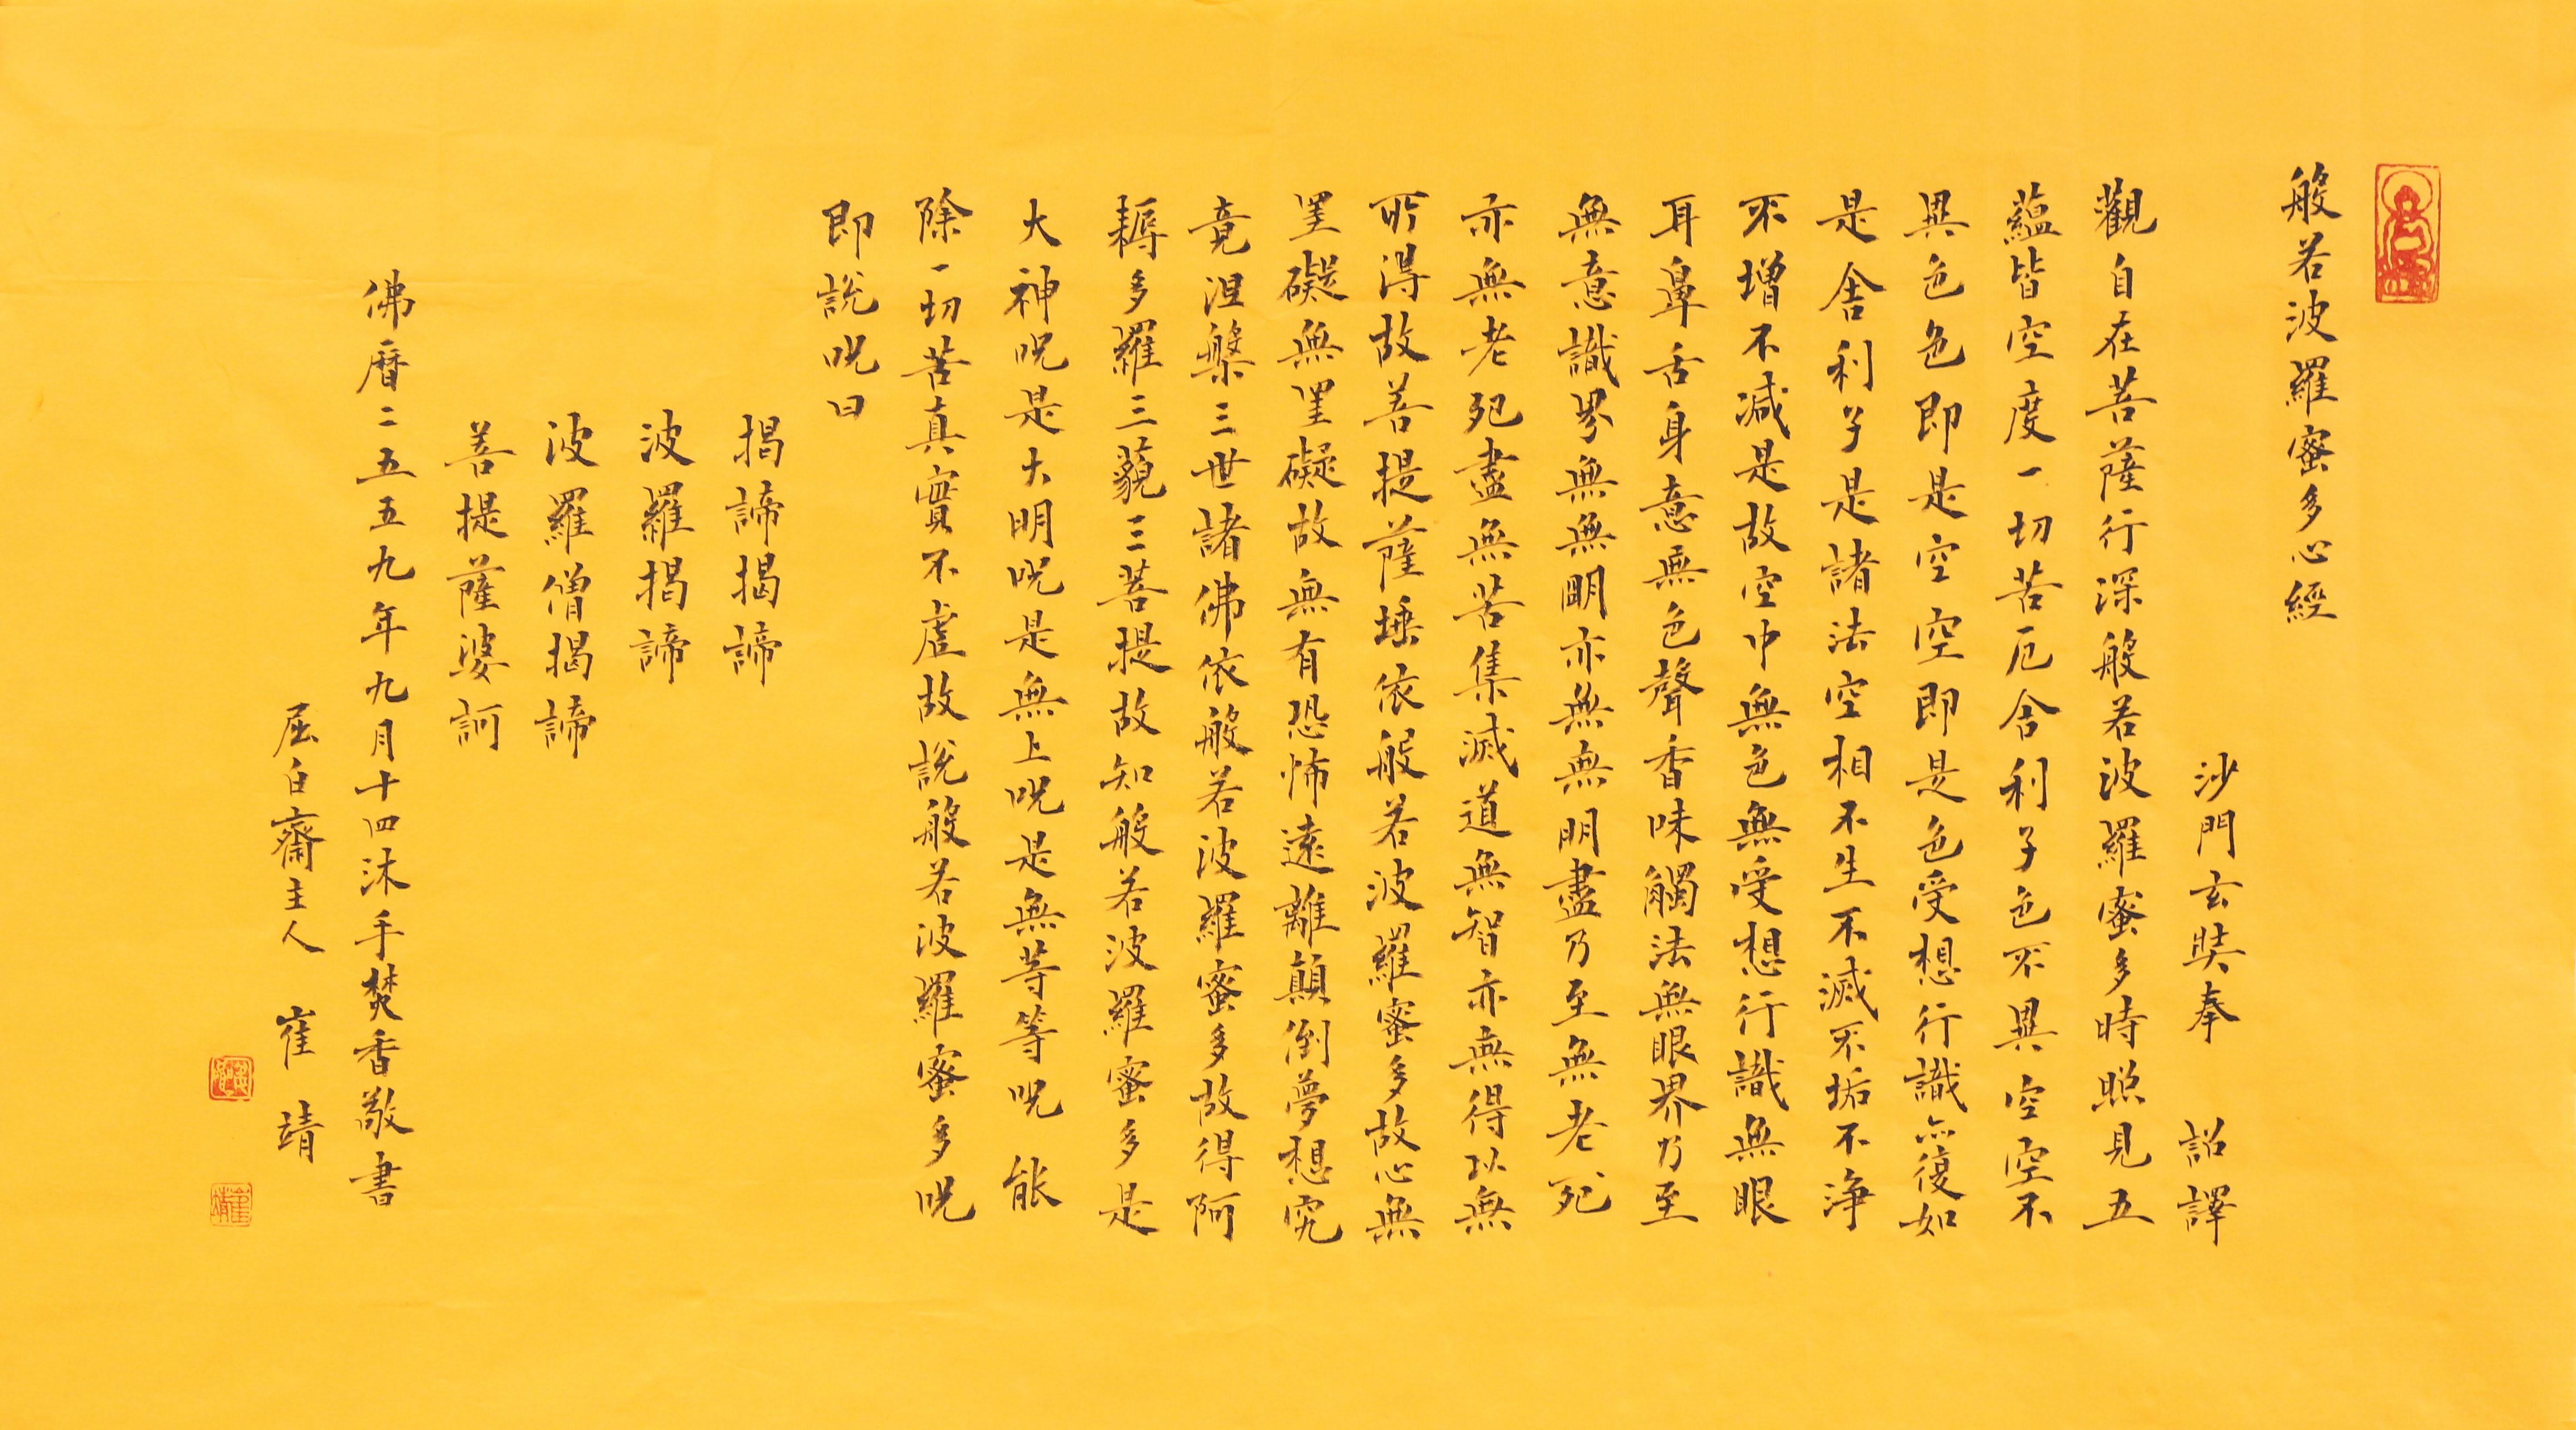 般若波羅蜜多心經
沙門玄奘奉 詔譯
觀自在菩薩行深般若波羅蜜多時照見五
蘊皆空度一切苦厄舍利子色不異空空不
異色色即是空空即是色受想行識亦復如
是舍利子是諸法空相不生不滅不垢不淨
不增不減是故空中無色無受想行識無眼
耳鼻舌身意無色聲香味觸法無眼界乃至
無意識界無無明亦無無明盡乃至無老死
亦無老死盡無苦集滅道無智亦無得以無
所得故菩提薩埵依般若波羅蜜多故心無
罣礙無罣礙故無有恐怖遠離顛倒夢想究
竟涅槃三世諸佛依般若波羅蜜多故得阿
耨多羅三藐三菩提故知般若波羅蜜多是
大神呪是大明呪是無上呪是無等等呪能
除一切苦真實不虛故說般若波羅蜜多呪
即說呪曰
揭諦揭諦
波羅揭諦
波羅僧揭諦
菩提薩婆訶
佛曆二五五九年九月十四沐手焚香敬書
屈白齋主人 崔靖
崔靖